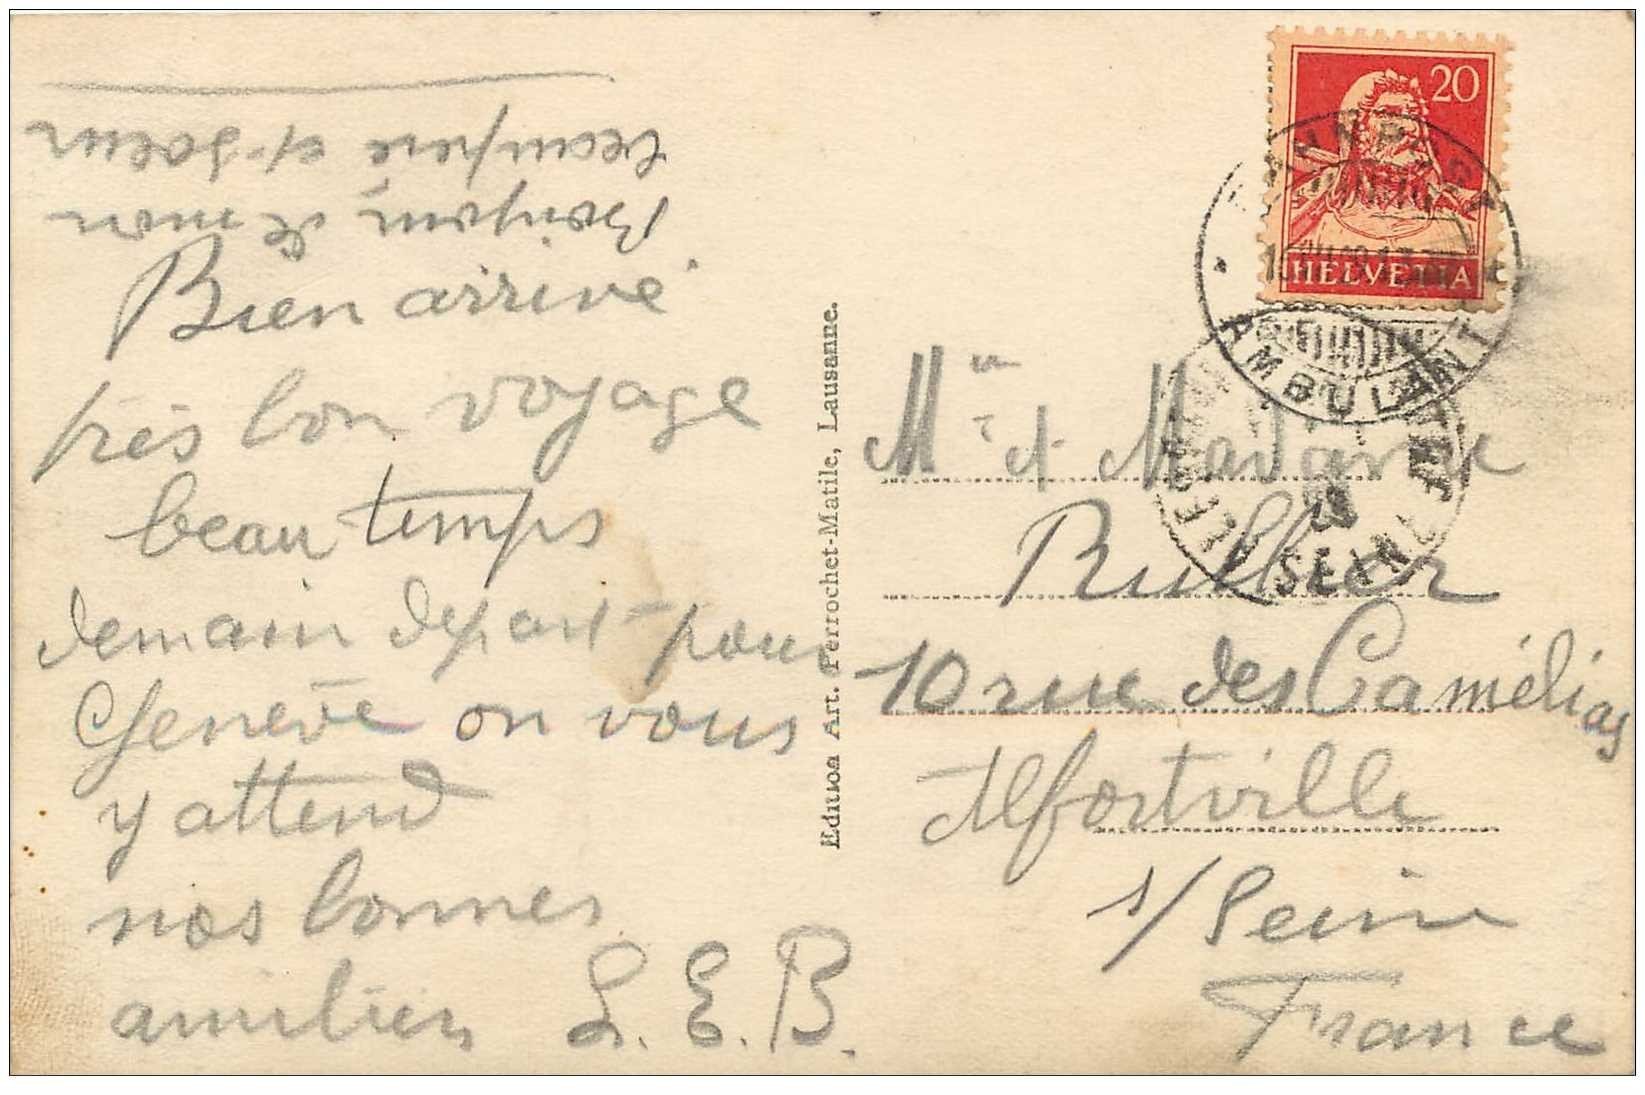 Bien arrivé
très bon voyage
beau temps
demain départ pour
Genève on vous
y attend
nos bonnes
amitiés L. E. B.
Bonjour de mon
beaufrère et soeur
Edition Art. Perrochet-Matile, Lausanne.
20
HELVETIA
BAHNPOST
AMBULANT
ALFORTVILLE
SEINE
Mr et Madame
10 rue des Camélias
Alfortville
s/ Seine
France